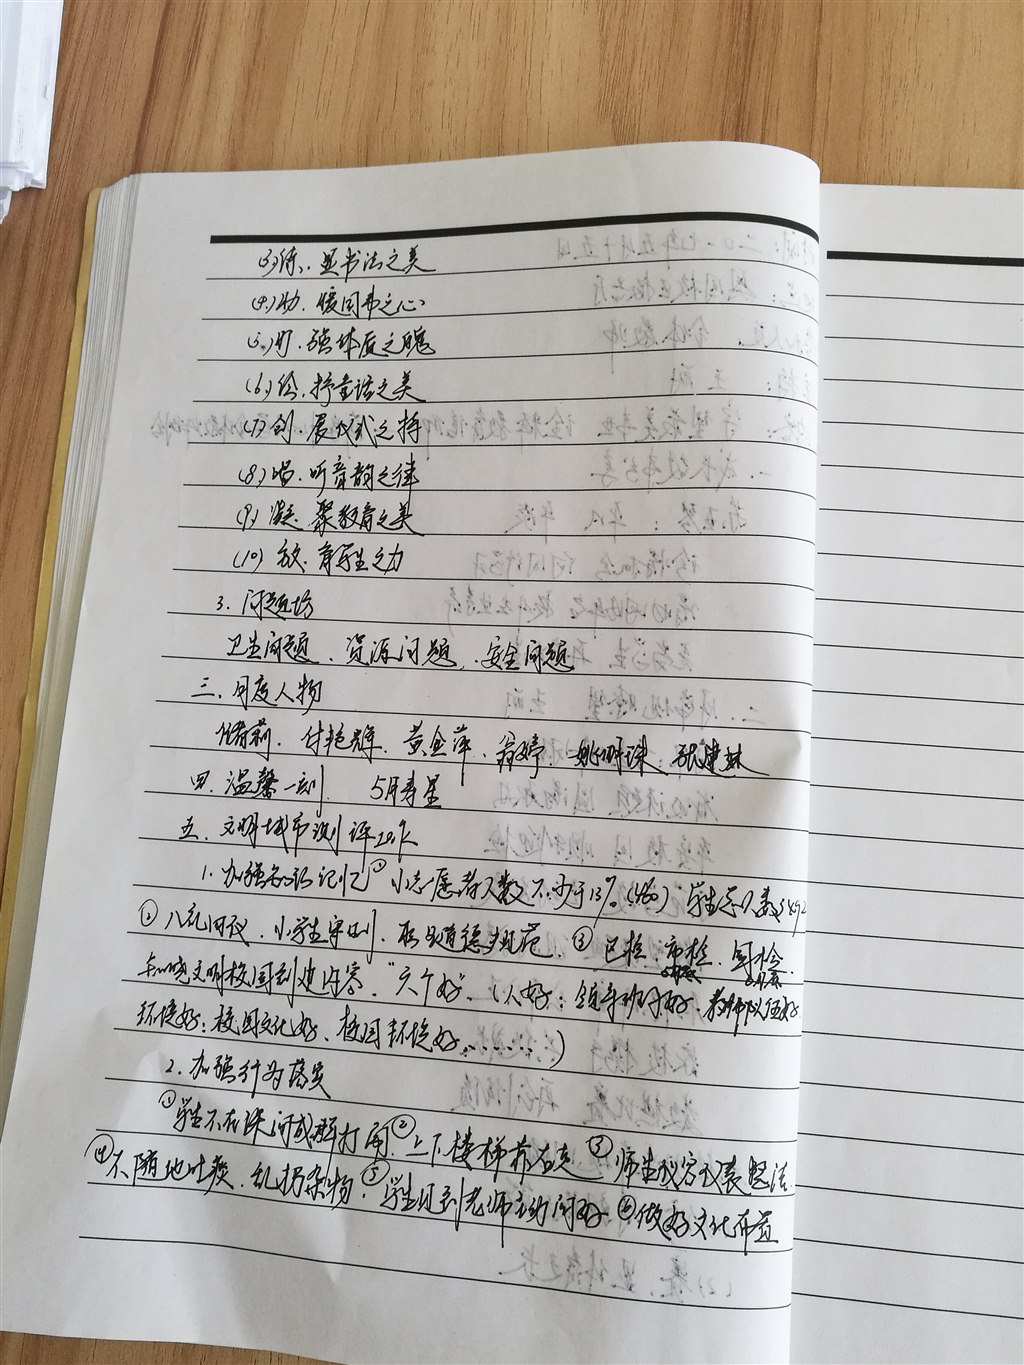 (3)练、显书法之美
(4)助、暖同书之心
(5)、强体质之魄
(6)绘、抒童话之美
(7)创、展仪式之持
(8)唱、听音韵之律
(9)凝、聚教育之美
(10)放、育学生之力
3. 问题场
卫生问题、资源问题、安全问题
三、月度人物
付艳辉、黄金萍、翁婷、姚珊珠、张建
四、温馨一刻 5月寿星
五、文明城市测评工作
1. 加强知识记忆 ① 小志愿者人数不少于13%(460) 学生总人数
② 八礼四仪、小学生守则、职业道德规范 ③ 区检、市检、国检
知晓文明校园创建内容、"六个好"、(六好:领导班子好、教师队伍好
环境好:校园文化好、校园环境好……)
2. 加强行为落实
①学生不在课间或群打闹②上下楼梯靠右走 ③师生仪容仪表整洁
④不随地吐痰、乱扔杂物 ⑤学生见到老师主动问好 ⑥做好文化布置